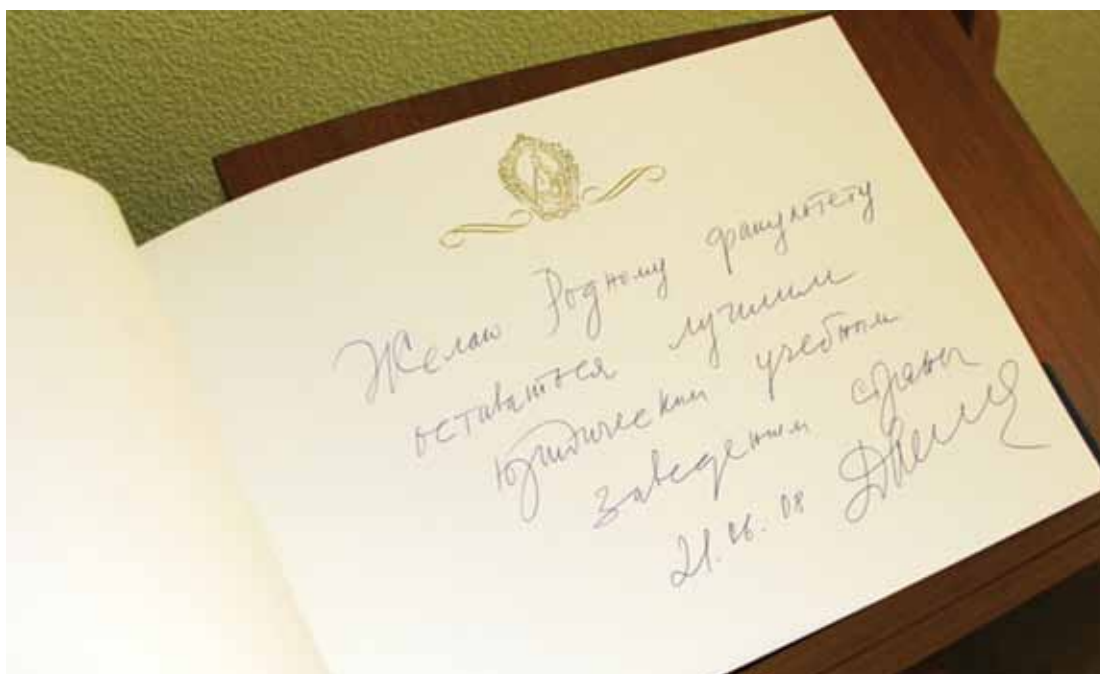 Желаю Родному факультету
оставаться лучшим
юридическим учебным
заведением страны
21.06.08